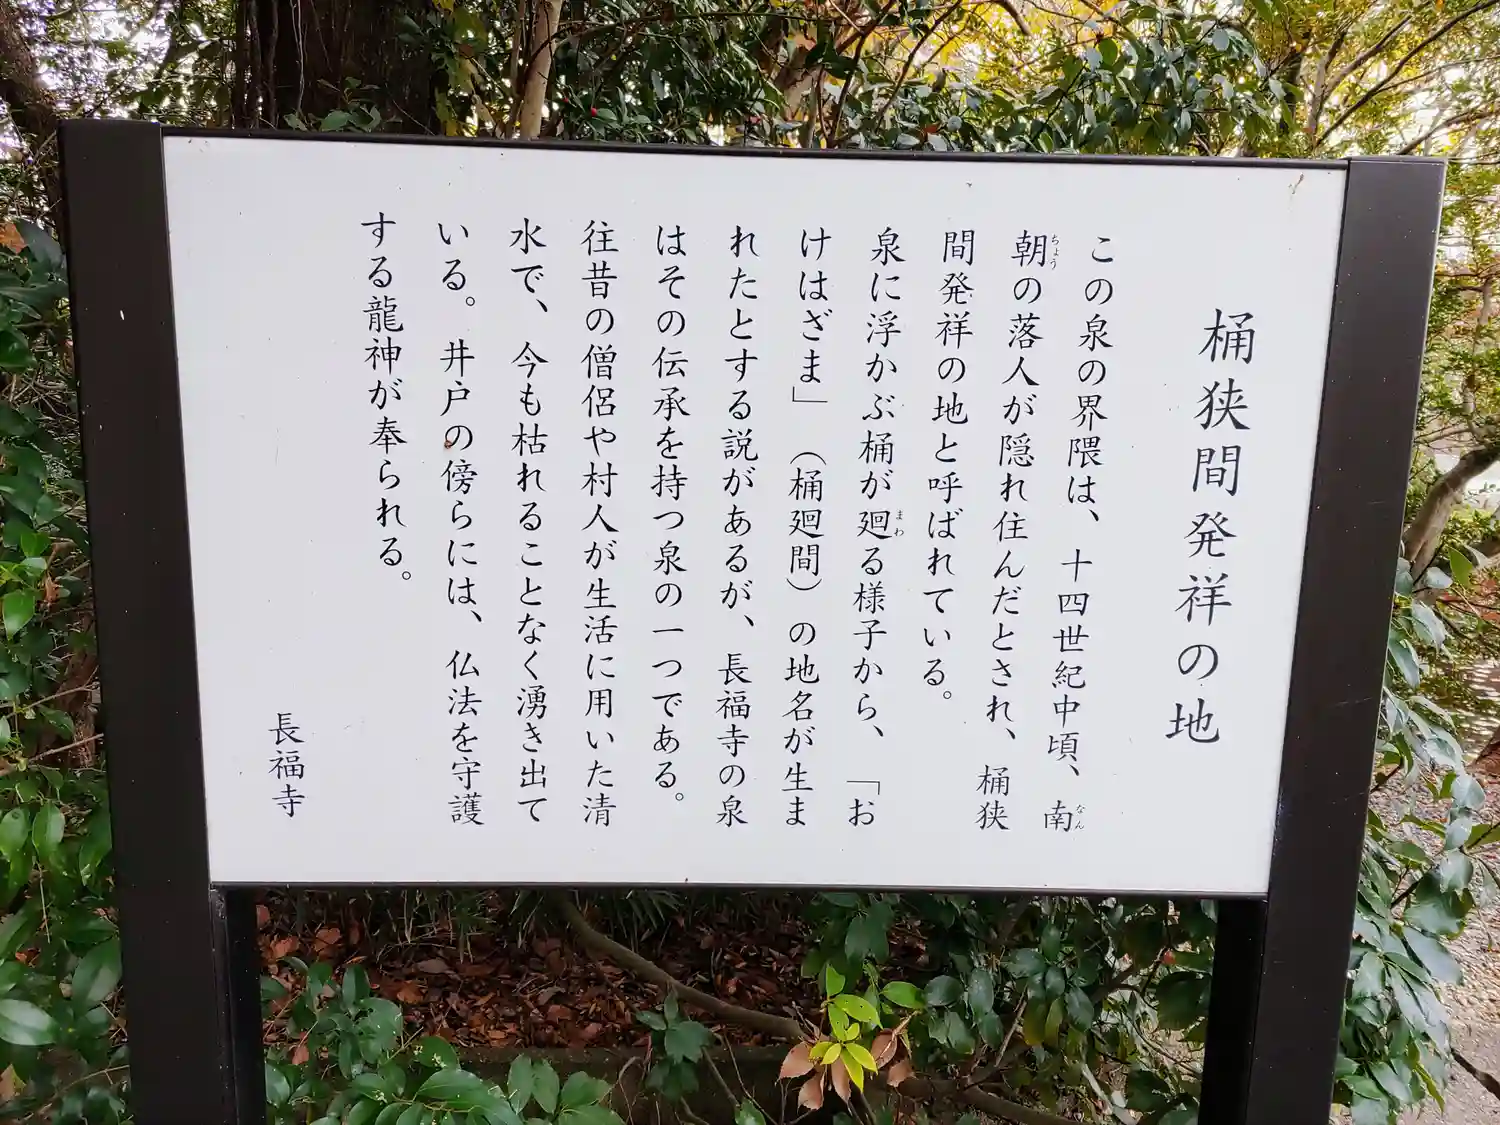 桶狭間発祥の地
この泉の界隈は、十四世紀中頃、南なん
朝ちょうの落人が隠れ住んだとされ、桶狭
間発祥の地と呼ばれている。
泉に浮かぶ桶が廻まわる様子から、「お
けはざま」（桶廻間）の地名が生ま
れたとする説があるが、長福寺の泉
はその伝承を持つ泉の一つである。
往昔の僧侶や村人が生活に用いた清
水で、今も枯れることなく湧き出て
いる。井戸の傍らには、仏法を守護
する龍神が奉られる。
長福寺